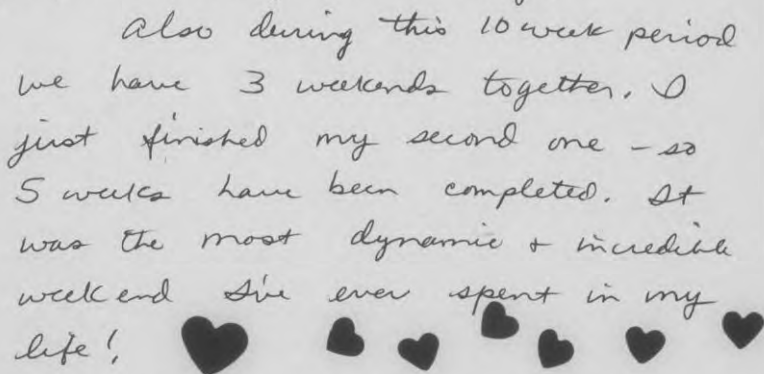 Also during this 10 week period
we have 3 weekends together. I
just finished my second one - so
5 weeks have been completed. It
was the most dynamic & incredible
weekend I've ever spent in my
life!